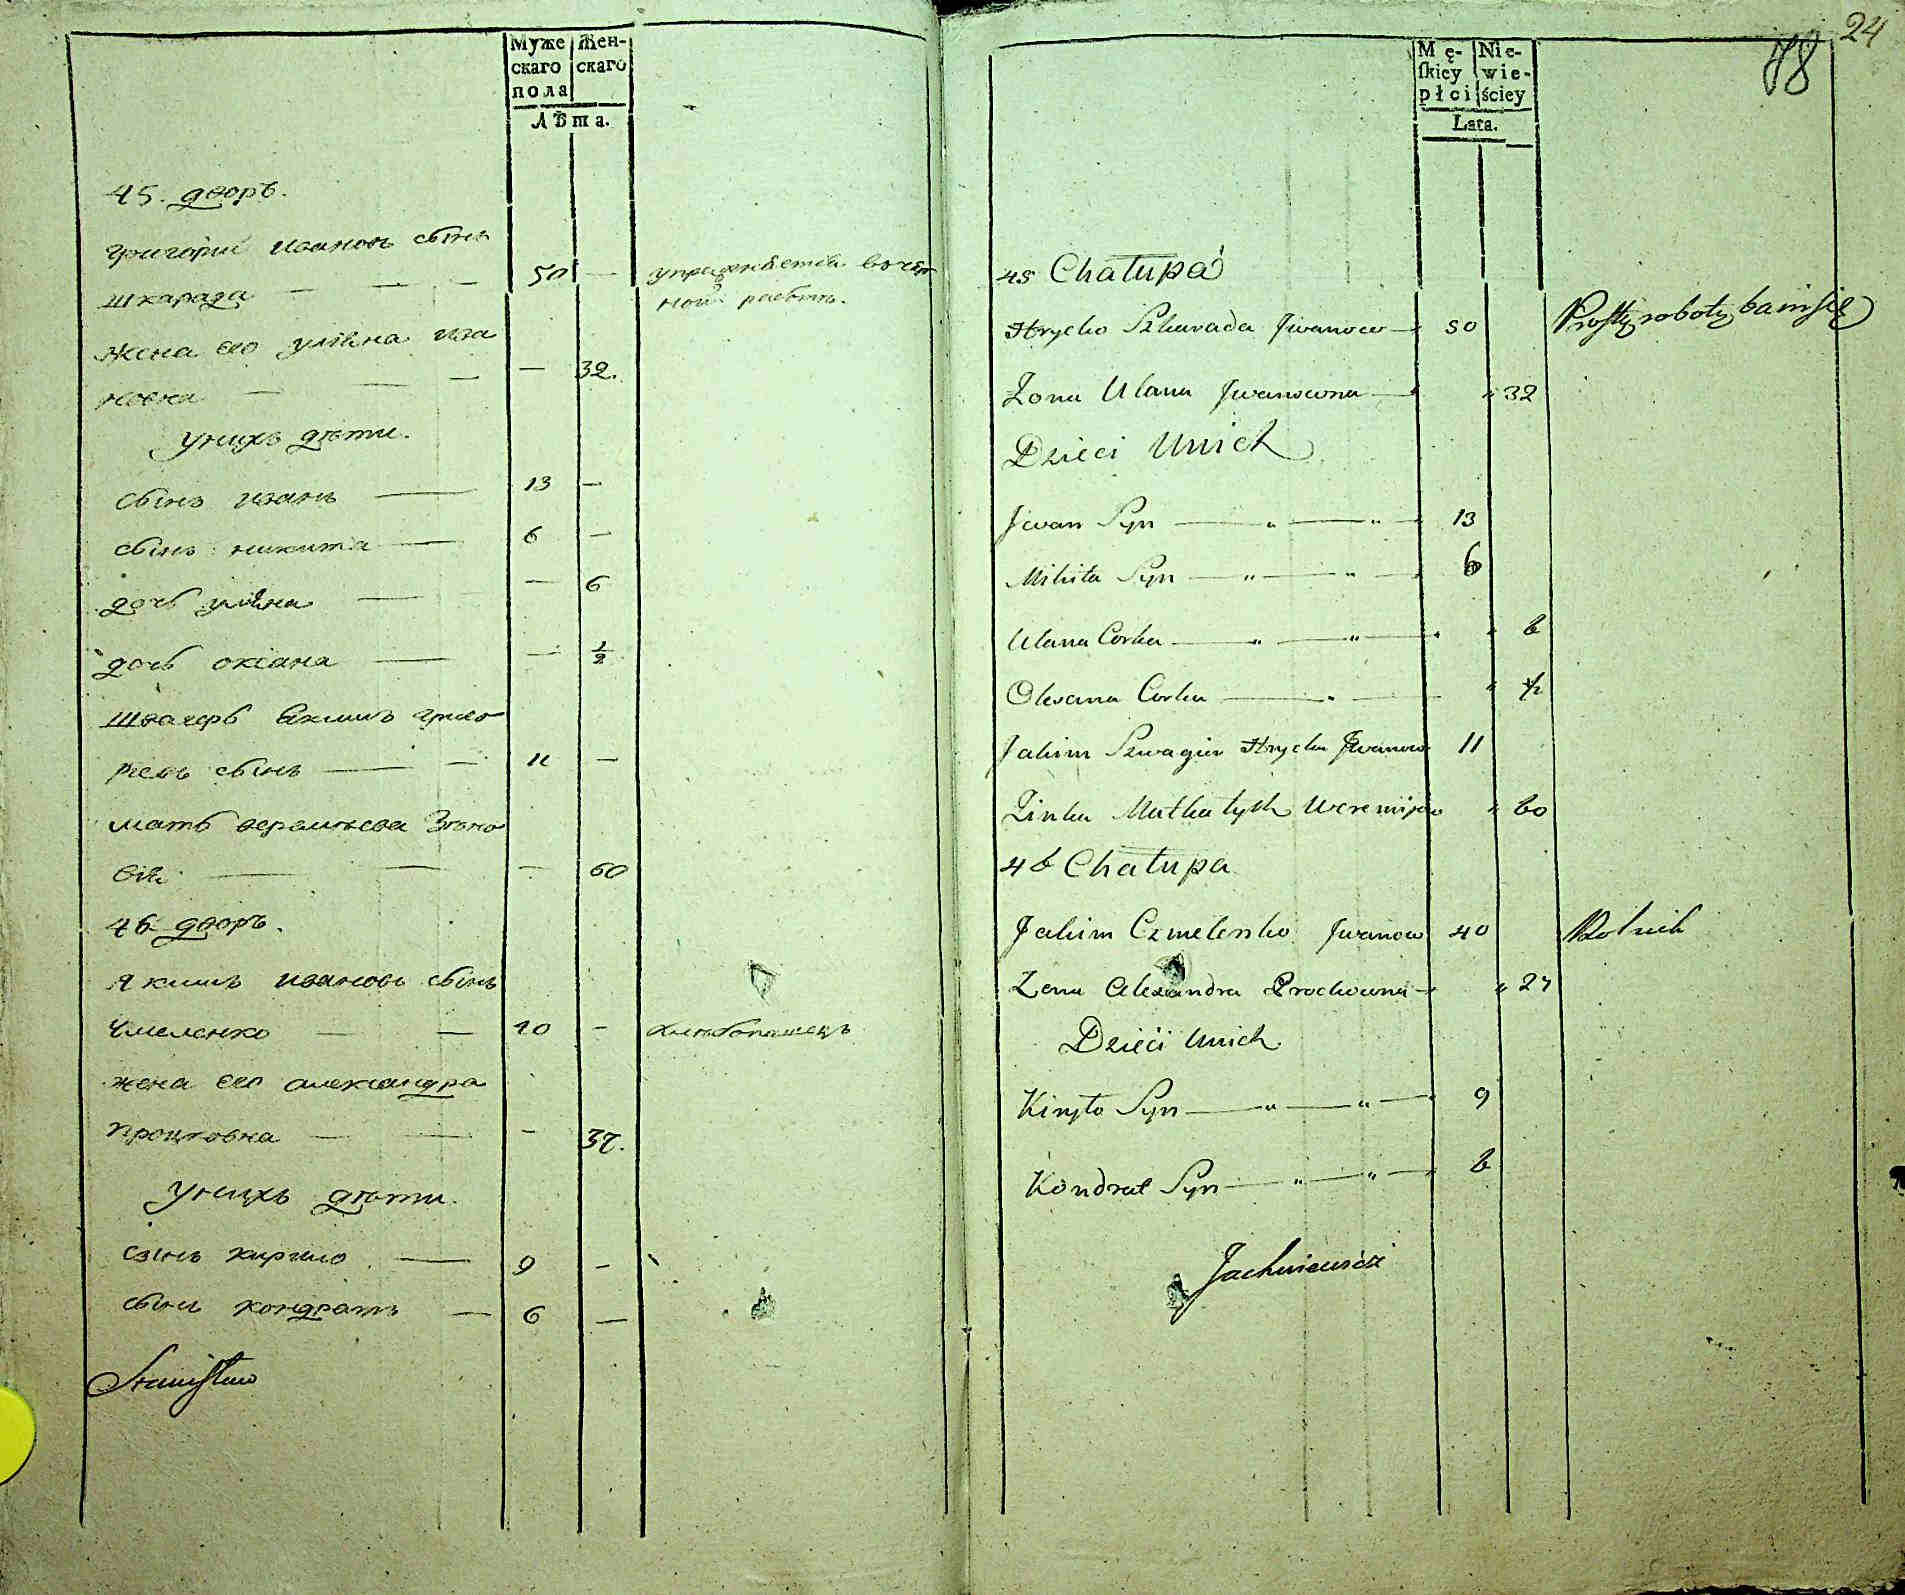 Муже
скаго
пола
Жен-
скаго
Лѣта.
45. дворъ.
Григорій Ивановъ сынъ
Шкарада — — — 50 —
упражняется въ
ной работѣ.
жена его Уліяна Ива
новна — — — — 32.
У нихъ дѣти.
сынъ Иванъ — 13 —
сынъ Никита — 6 —
дочь Уліяна — — 6
дочь Оксіана — — 1/2
швагеръ Якимъ Григо
рьевъ сынъ — — 11 —
мать
— — — 60
46 дворъ.
Якимъ Ивановъ сынъ
Чмеленко — — 40 —
хлѣбопашецъ
жена его Александра
Процковна — — — 37.
У нихъ дѣти.
сынъ Кирило — 9 —
сынъ Кондратъ — 6 —
Stanisław
24
78
Mę-
skiey
płci
Nie-
wie-
ściey
Lata.
45 Chałupa
Hrycko Szkarada Jwanow — 50
Prostą robotą bawi się
Żona Ulana Jwanowna — " 32
Dzieci Unich
Jwan Syn — " — " — 13
Mikita Syn — " — " — 6
Ulana Corka — " — " — " 6
Olexana Corka — " — " 1/2
Jakim Szwagier Hrycka Jwanow 11
Zinka Matka tych " 60
46 Chałupa
Jakim Czmelenko Jwanow 40
Rolnik
Zona Alexandra Prockowna — " 27
Dzieci Unich
Kiryło Syn — " — " — 9
Kondrat Syn — " — " — 6
Jachniewicz